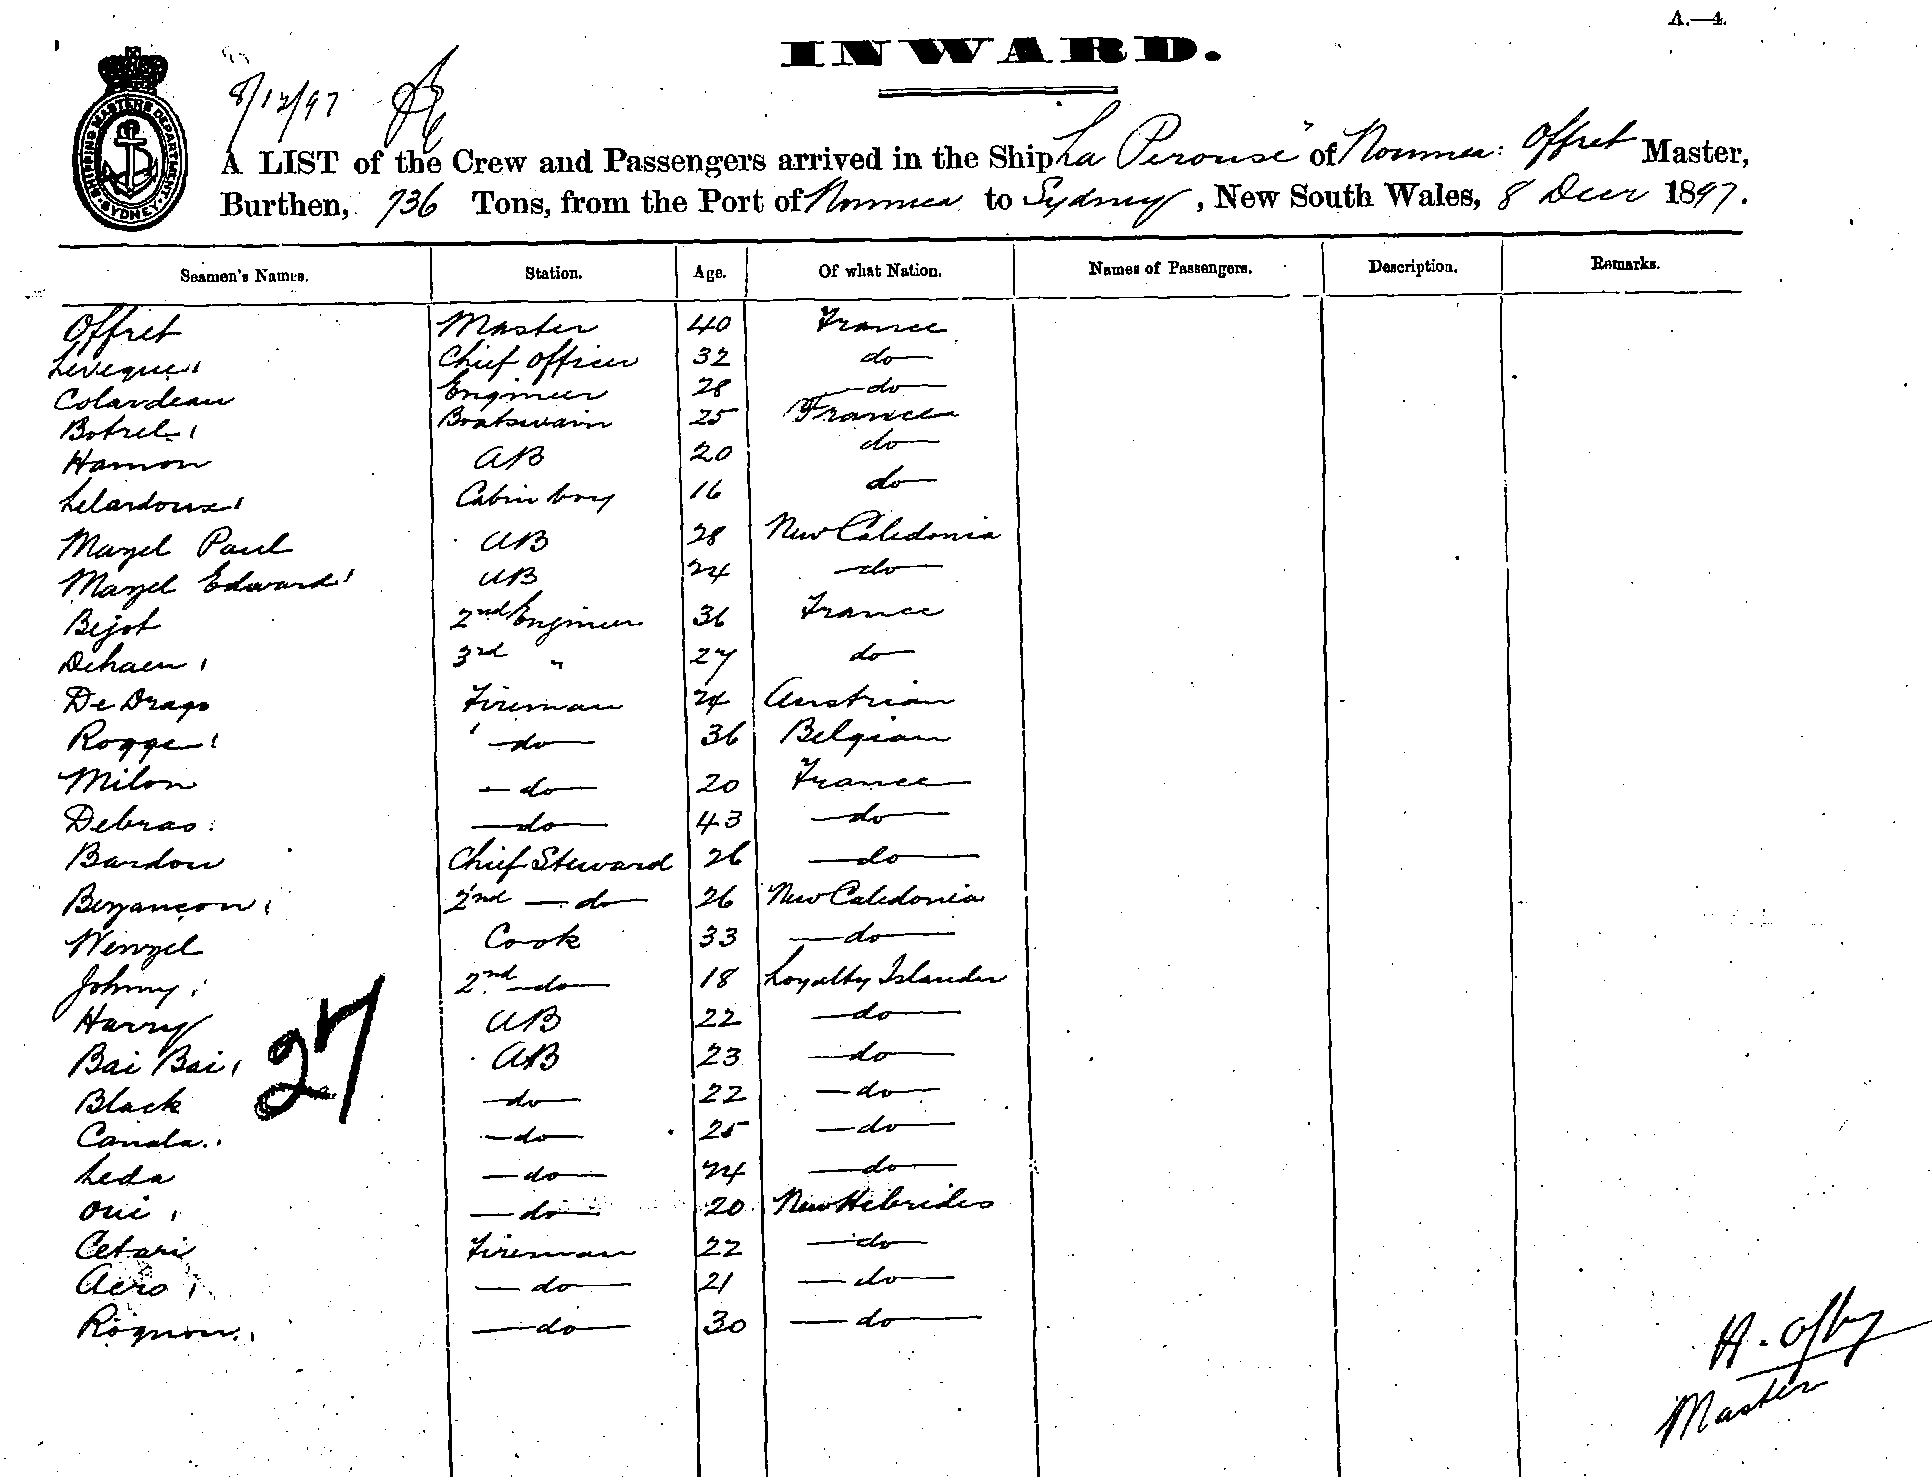 A.—4.
INWARD.
8/12/97
SHIPPING MASTERS DEPARTMENT SYDNEY
A LIST of the Crew and Passengers arrived in the Ship La Perouse" of Noumea: Offret Master,
Burthen, 736 Tons, from the Port of Noumea to Sydney, New South Wales, 8 Decr 1897.
Seamen's Names. Station. Age. Of what Nation. Names of Passengers. Description. Remarks.
Offret Master 40 France
Leveque Chief Officer 32 do
Colardeau Engineer 28 do
Botrel Boatswain 25 France
Hamon AB 20 do
Lelardoux Cabin boy 16 do
Mazel Paul AB 28 New Caledonia
Mazel Edward AB 24 do
Bejot 2nd Engineer 36 France
Dehaen 3rd " 27 do
De Drago Fireman 24 Austrian
Rogge do 36 Belgian
Milon do 20 France
Debras do 43 do
Bardou Chief Steward 26 do
Bezancon 2nd do 26 New Caledonia
Wenzel Cook 33 do
Johnny 2nd do 18 Loyalty Islander
Harry AB 22 do
Bai Bai AB 23 do
27
Black do 22 do
Canala do 25 do
Leda do 24 do
Oui do 20 New Hebrides
Cetari Fireman 22 do
Aero do 21 do
Rognon do 30 do
Master